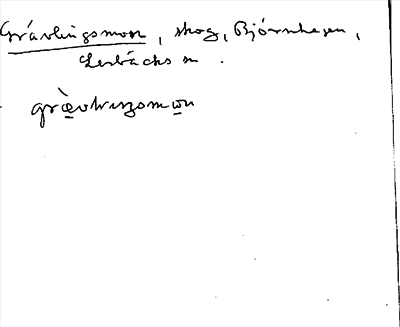 Grävlingsmon, skog, Björnhagen,
Lerbäcks sn.
grὲvlıŋsmωn